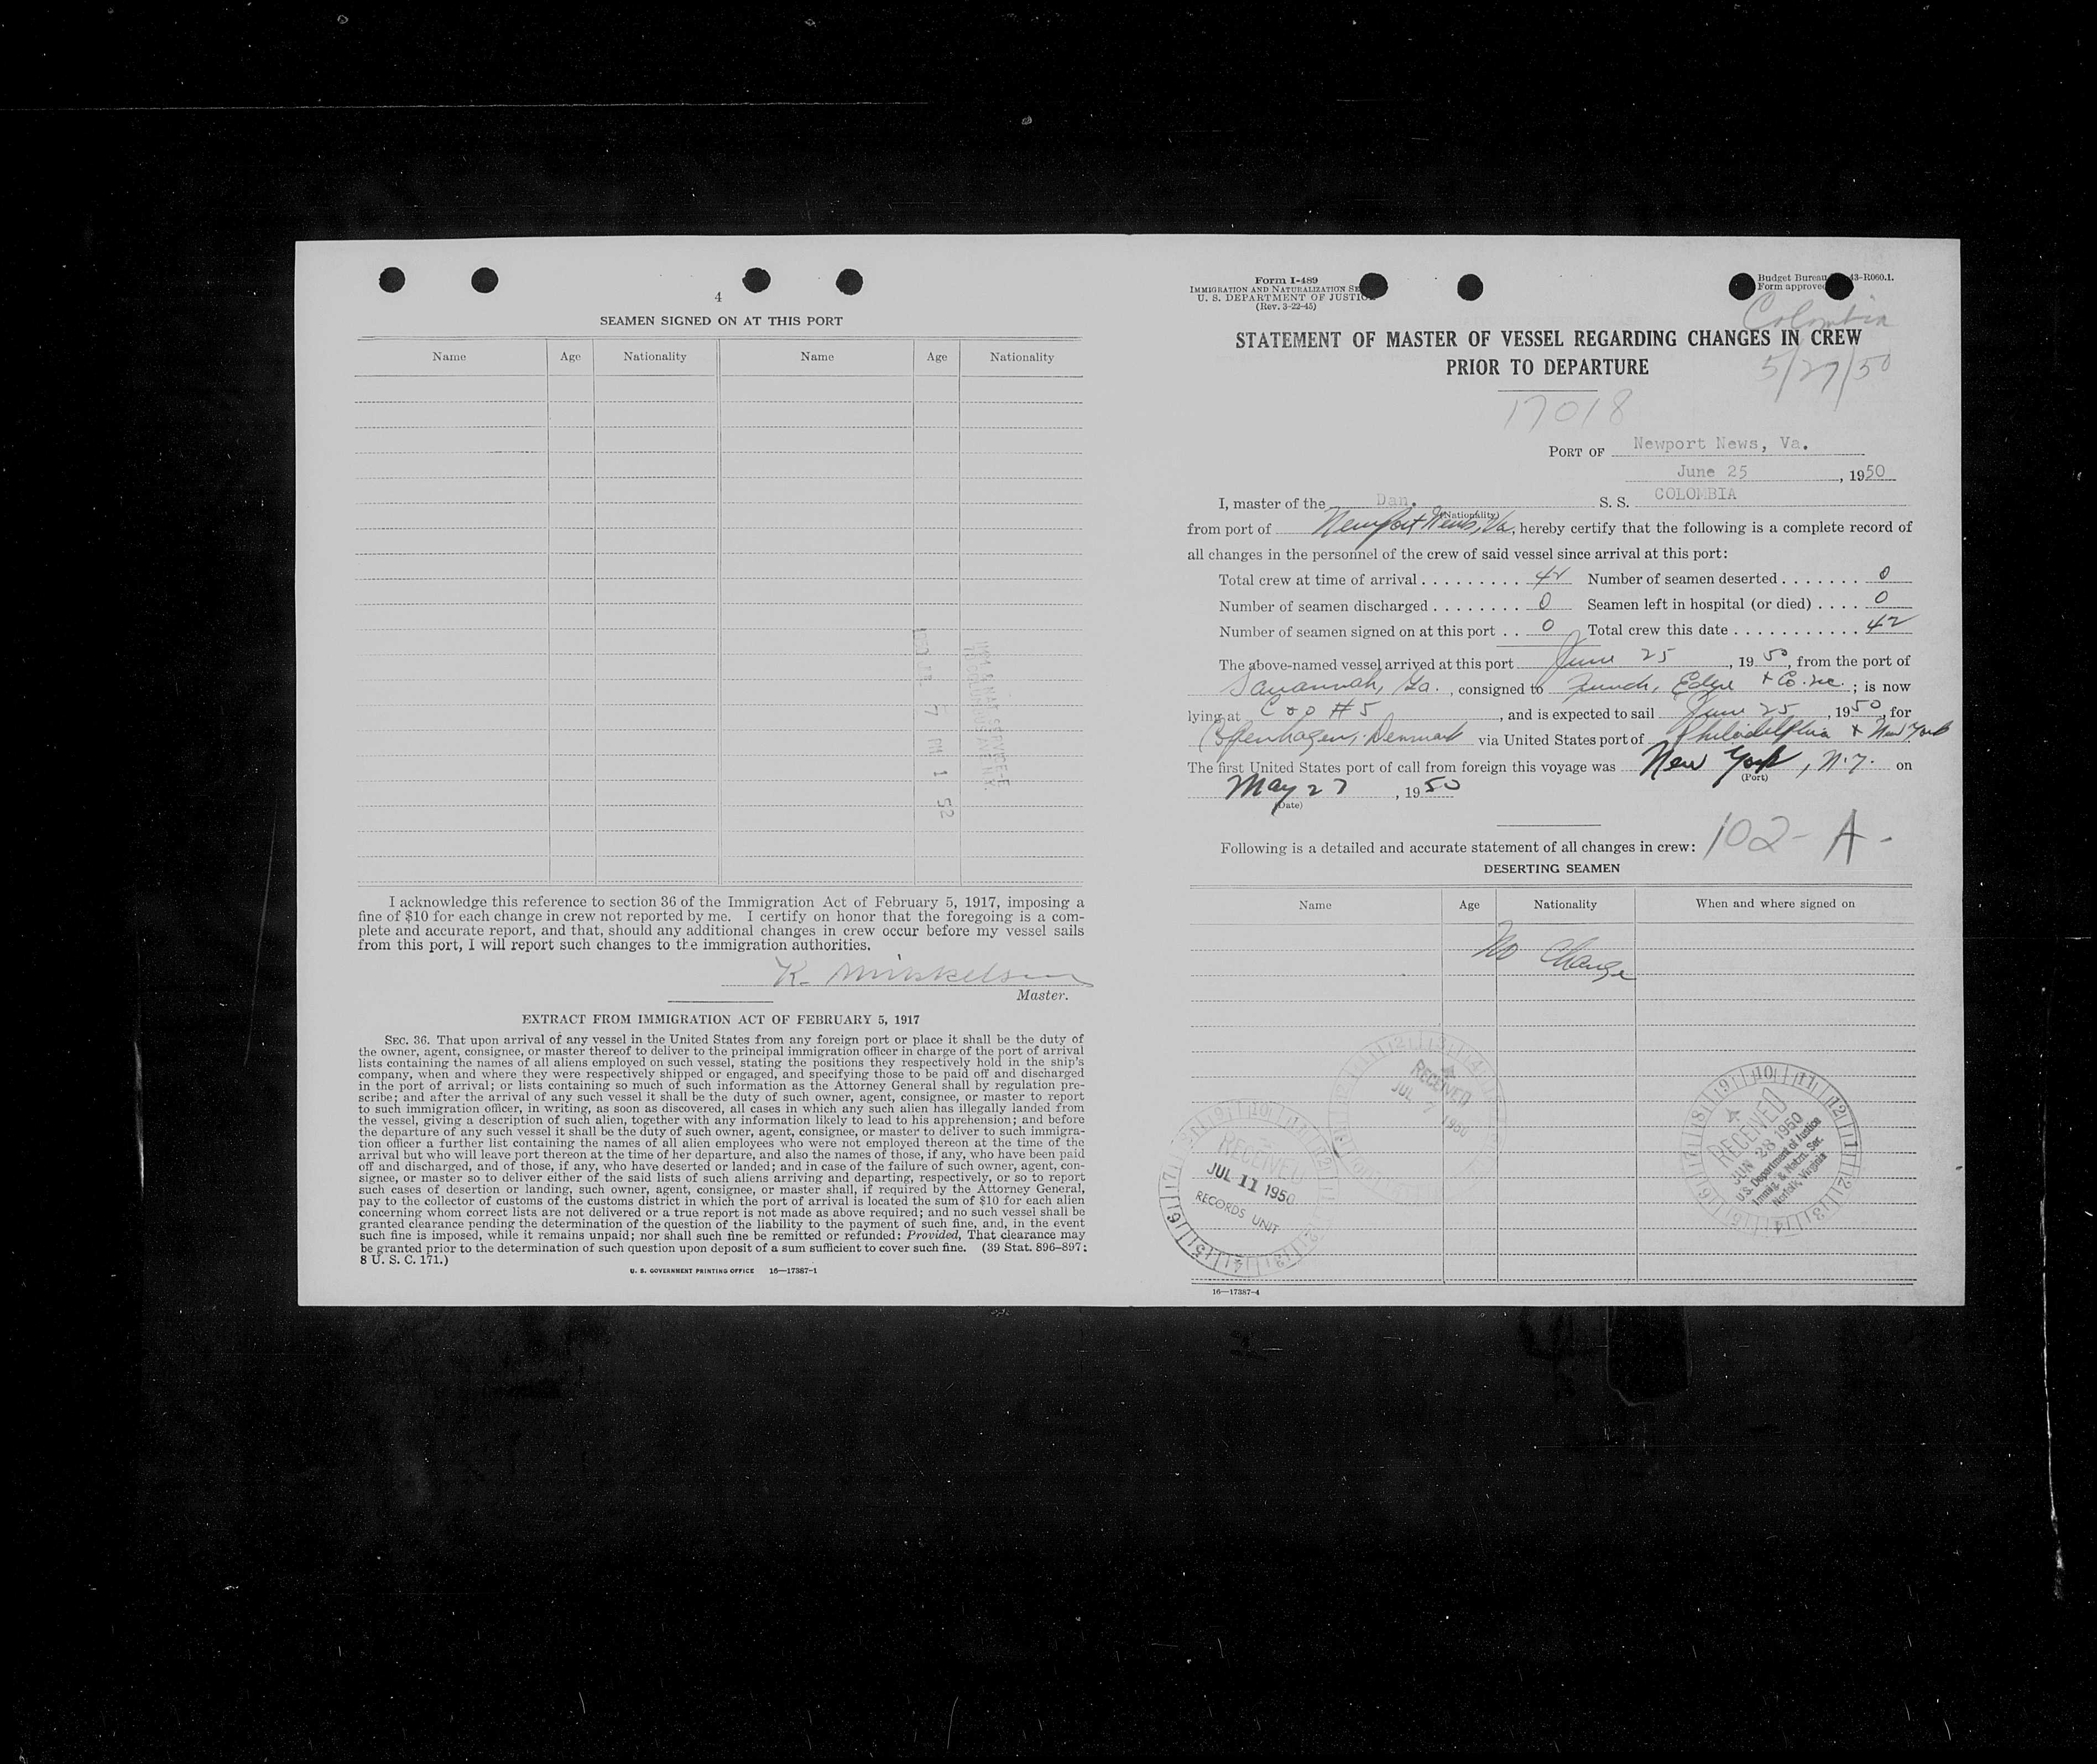 4
SEAMEN SIGNED ON AT THIS PORT
Name Age Nationality Name Age Nationality
PM 1 52
I acknowledge this reference to section 36 of the Immigration Act of February 5, 1917, imposing a
fine of $10 for each change in crew not reported by me. I certify on honor that the foregoing is a com-
plete and accurate report, and that, should any additional changes in crew occur before my vessel sails
from this port, I will report such changes to the immigration authorities.
K.
Master.
EXTRACT FROM IMMIGRATION ACT OF FEBRUARY 5, 1917
SEC. 36. That upon arrival of any vessel in the United States from any foreign port or place it shall be the duty of
the owner, agent, consignee, or master thereof to deliver to the principal immigration officer in charge of the port of arrival
lists containing the names of all aliens employed on such vessel, stating the positions they respectively hold in the ship's
company, when and where they were respectively shipped or engaged, and specifying those to be paid off and discharged
in the port of arrival; or lists containing so much of such information as the Attorney General shall by regulation pre-
scribe; and after the arrival of any such vessel it shall be the duty of such owner, agent, consignee, or master to report
to such immigration officer, in writing, as soon as discovered, all cases in which any such alien has illegally landed from
the vessel, giving a description of such alien, together with any information likely to lead to his apprehension; and before
the departure of any such vessel it shall be the duty of such owner, agent, consignee, or master to deliver to such immigra-
tion officer a further list containing the names of all alien employees who were not employed thereon at the time of the
arrival but who will leave port thereon at the time of her departure, and also the names of those, if any, who have been paid
off and discharged, and of those, if any, who have deserted or landed; and in case of the failure of such owner, agent, con-
signee, or master so to deliver either of the said lists of such aliens arriving and departing, respectively, or so to report
such cases of desertion or landing, such owner, agent, consignee, or master shall, if required by the Attorney General,
pay to the collector of customs of the customs district in which the port of arrival is located the sum of $10 for each alien
concerning whom correct lists are not delivered or a true report is not made as above required; and no such vessel shall be
granted clearance pending the determination of the question of the liability to the payment of such fine, and, in the event
such fine is imposed, while it remains unpaid; nor shall such fine be remitted or refunded: Provided, That clearance may
be granted prior to the determination of such question upon deposit of a sum sufficient to cover such fine. (39 Stat. 896–897;
8 U. S. C. 171.)
U. S. GOVERNMENT PRINTING OFFICE 16—17387-1
Form I-489
IMMIGRATION AND NATURALIZATION SE
U. S. DEPARTMENT OF JUSTIC
(Rev. 3-22-45)
Budget Bureau 43-R060.1.
Form approved
Colombia
STATEMENT OF MASTER OF VESSEL REGARDING CHANGES IN CREW
PRIOR TO DEPARTURE
5/27/50
17018
PORT OF Newport News, Va.
June 25, 1950
I, master of the Dan. S. S. COLOMBIA
(Nationality)
from port of Newport News, Va, hereby certify that the following is a complete record of
all changes in the personnel of the crew of said vessel since arrival at this port:
Total crew at time of arrival 42 Number of seamen deserted 0
Number of seamen discharged 0 Seamen left in hospital (or died) 0
Number of seamen signed on at this port 0 Total crew this date 42
The above-named vessel arrived at this port June 25, 1950, from the port of
Savannah, Ga., consigned to Funch, Edye & Co. Inc.; is now
lying at C & O #5, and is expected to sail June 25, 1950, for
Copenhagen, Denmark via United States port of Philadelphia & New York
The first United States port of call from foreign this voyage was New York, N.Y. on
(Port)
May 27, 1950
(Date)
Following is a detailed and accurate statement of all changes in crew: 102-A-
DESERTING SEAMEN
Name Age Nationality When and where signed on
No Change
RECEIVED
JUL 7 1950
RECEIVED
JUL 11 1950
RECORDS UNIT
RECEIVED
JUN 28 1950
U.S. Department of Justice
Immig. & Natzn. Ser.
Norfolk, Virginia
16—17387-4